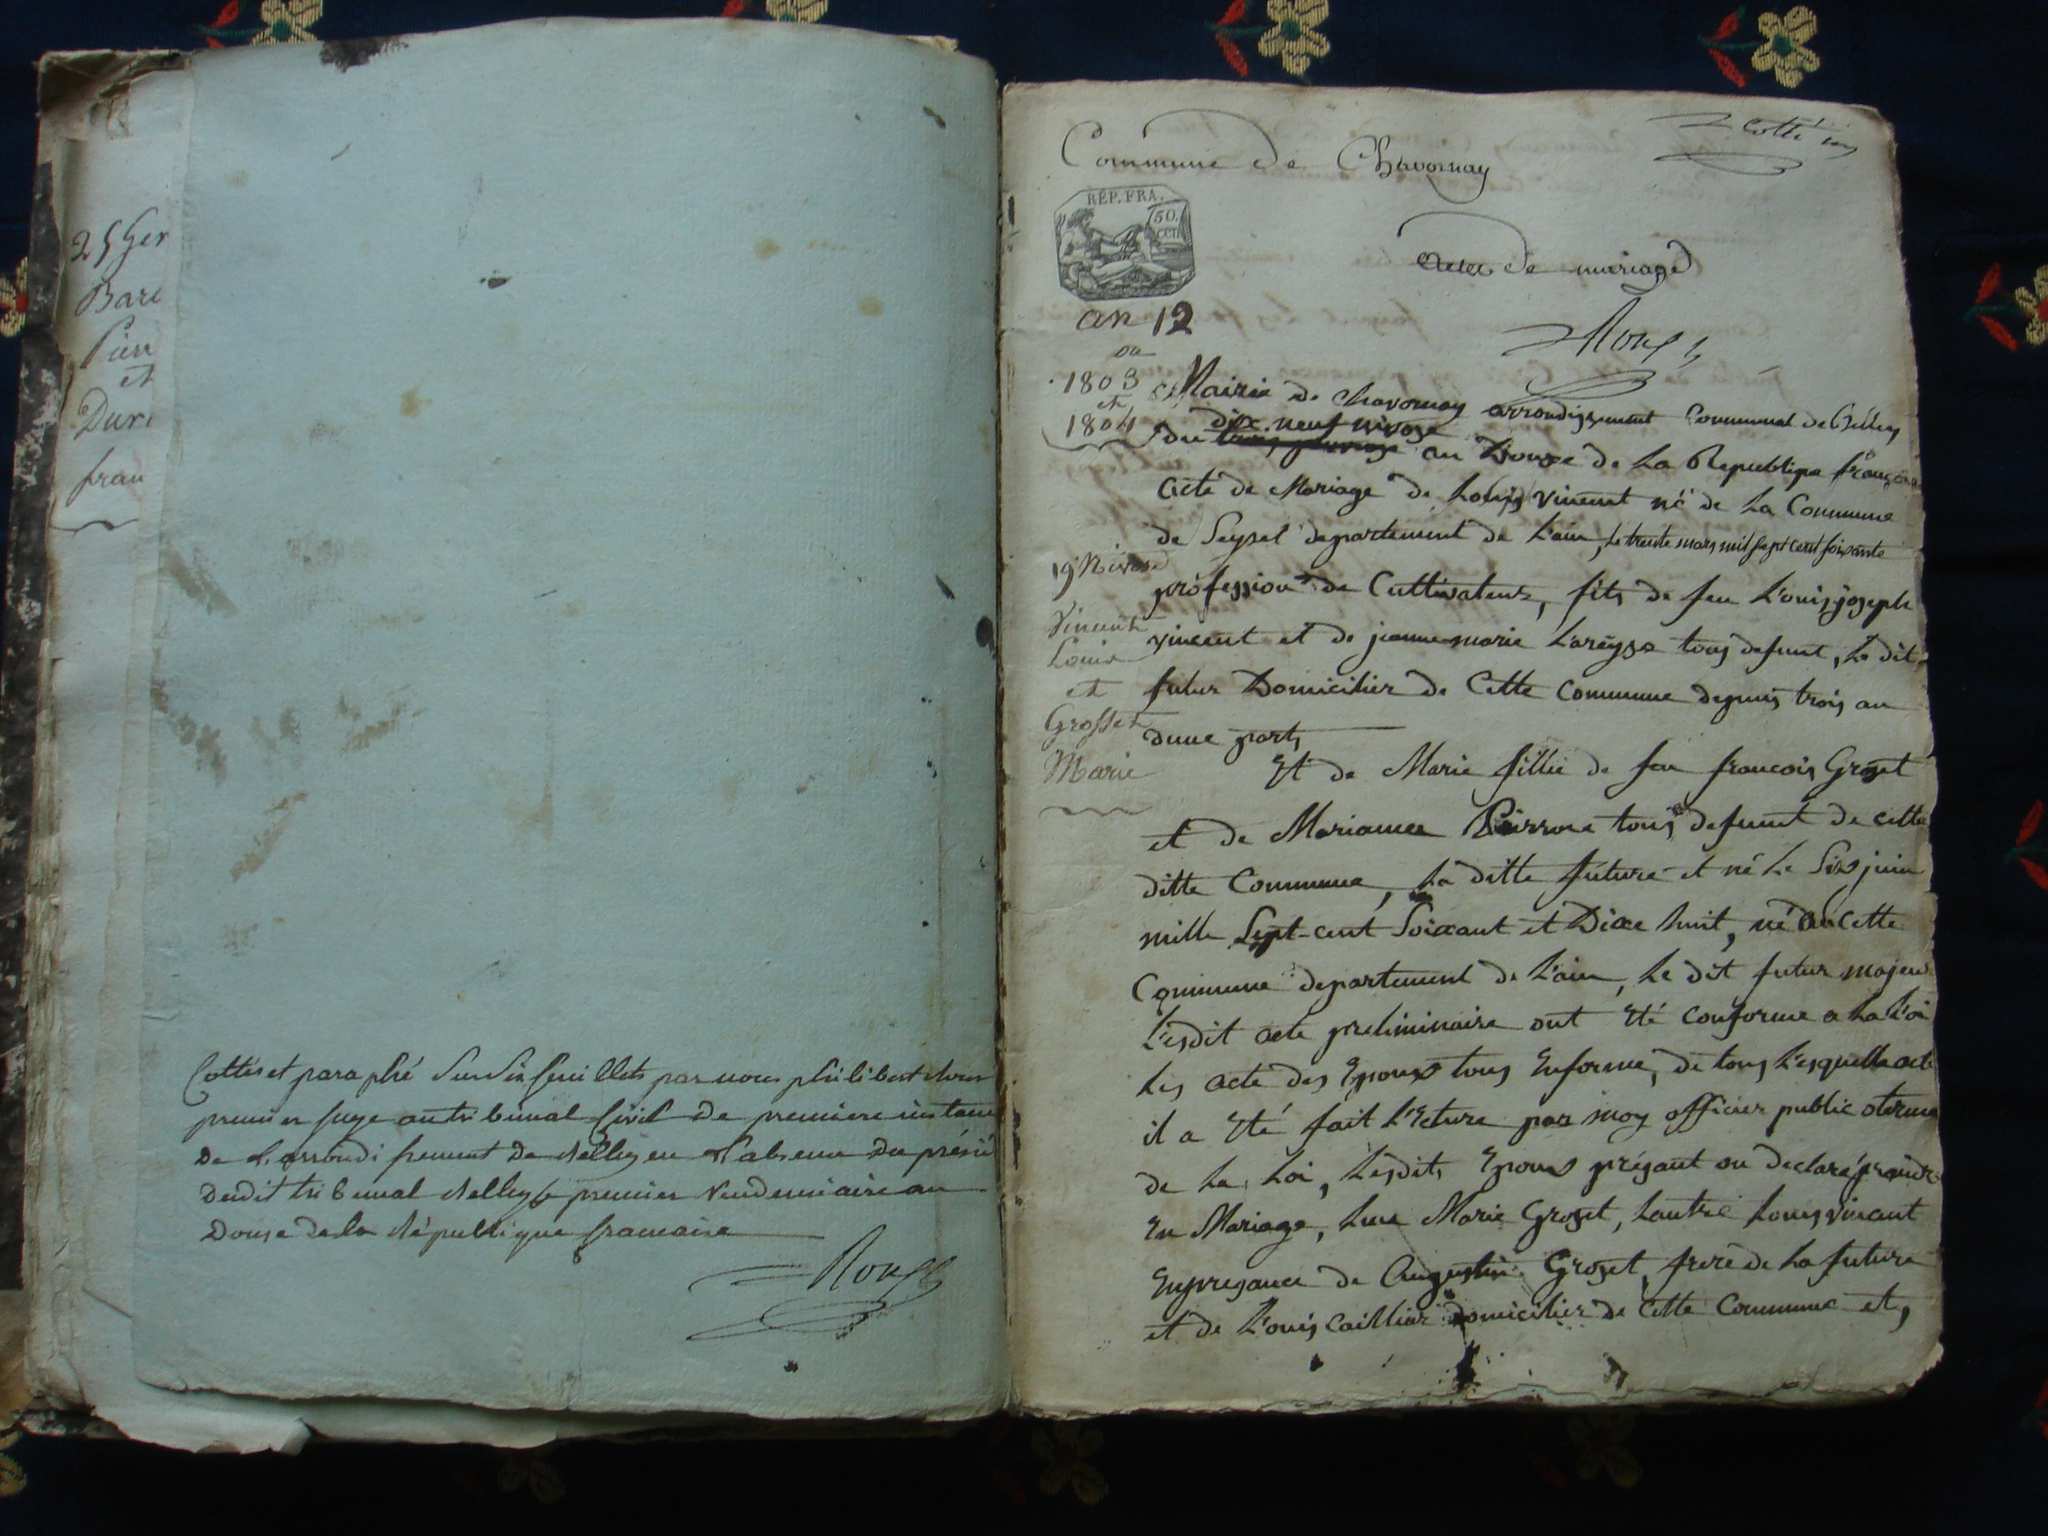 25 Ger
Bare
Pier
et
Dure
fran
Cottés et paraphé Sur Six feuillets par nous philibert
premier juge au tribunal Civil de premiere instance
De L'arrondissement De Belley en L'absence Du présid
Dudit tribunal Belley le premier Vendemiaire an
Douse de la République francaise
Cotté un
Commune De Chavornay
REP. FRA.
50.
CEN
actes De mariage
an 12
ou
1803
et
1804
Mairie de Chavornay arrondissement Communal de Belley
dix neuf nivose
Du an Douze de La Republique françaı
Acte de Mariage de Louis Vincent né de La Commune
de Seysel departement de L'ain, le trente mars mil sept cent soixante
profession de Cultivateur, fils de feu L'ouis joseph
vincent et de jeanne marie Lareysse tous defunt, Le dit
futur Domicilier de Cette Commune depuis trois an
dune part
19 Nivose
Vincent
Louis
et
Grosset
Marie
Et de Marie fillie de feu francois Groset
et de Marianne tous defunt de cette
ditte Commune, La ditte future et né Le Six juin
mille Sept-cent Soixant et Dixe huit, né Cette
Commune departement de L'ain, Le dit futur majeur
L'esdit acte preliminaire ont Eté Conforme a La L'oi
Les acte des Epoux tous Enforme, de tous L'esquelle acte
il a Eté fait L'Ecture par moy officier public
de La Loi, L'esdits Epoux présant on declaré prandre
En Mariage, Lune Marie Groset, Lautre Louis vincant
Enpresance de Augustin Groset, frere de La future
et de L'ouis Caillier domicilier de Cette Commune et,